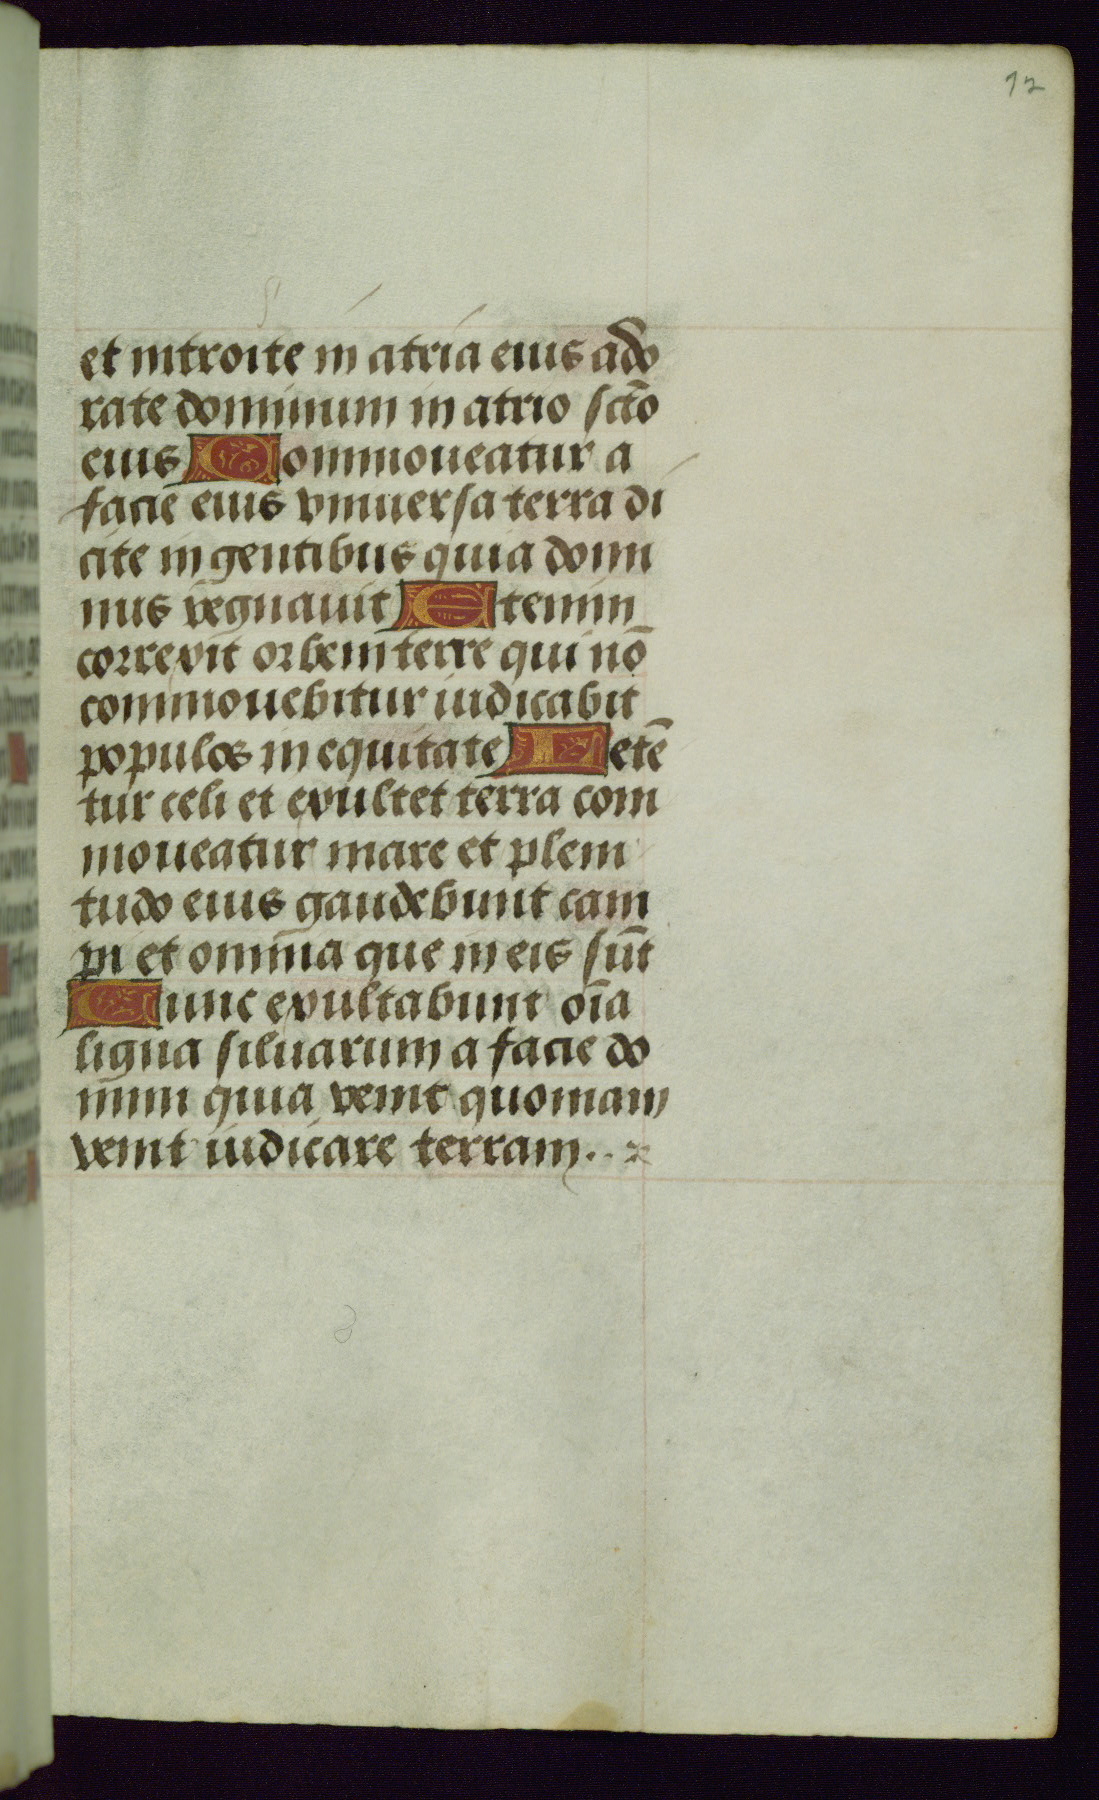 12
et introite in atria eius ado
rate dominum in atrio sct̄o
eius Commoueatur a
facie eius vniuersa terra di
cite in gentibus quia domi
nus regnauit Etenim
correxit orbem terre qui nō
commouebitur iudicabit
populos in equitate Letē
tur celi et exultet terra com
moueatur mare et pleni
tudo eius gaudebunt cam
pi et omnia que in eis sūt
Tunc exultabunt oīa
ligna siluarum a facie do
mini quia venit quoniam
venit iudicare terram..